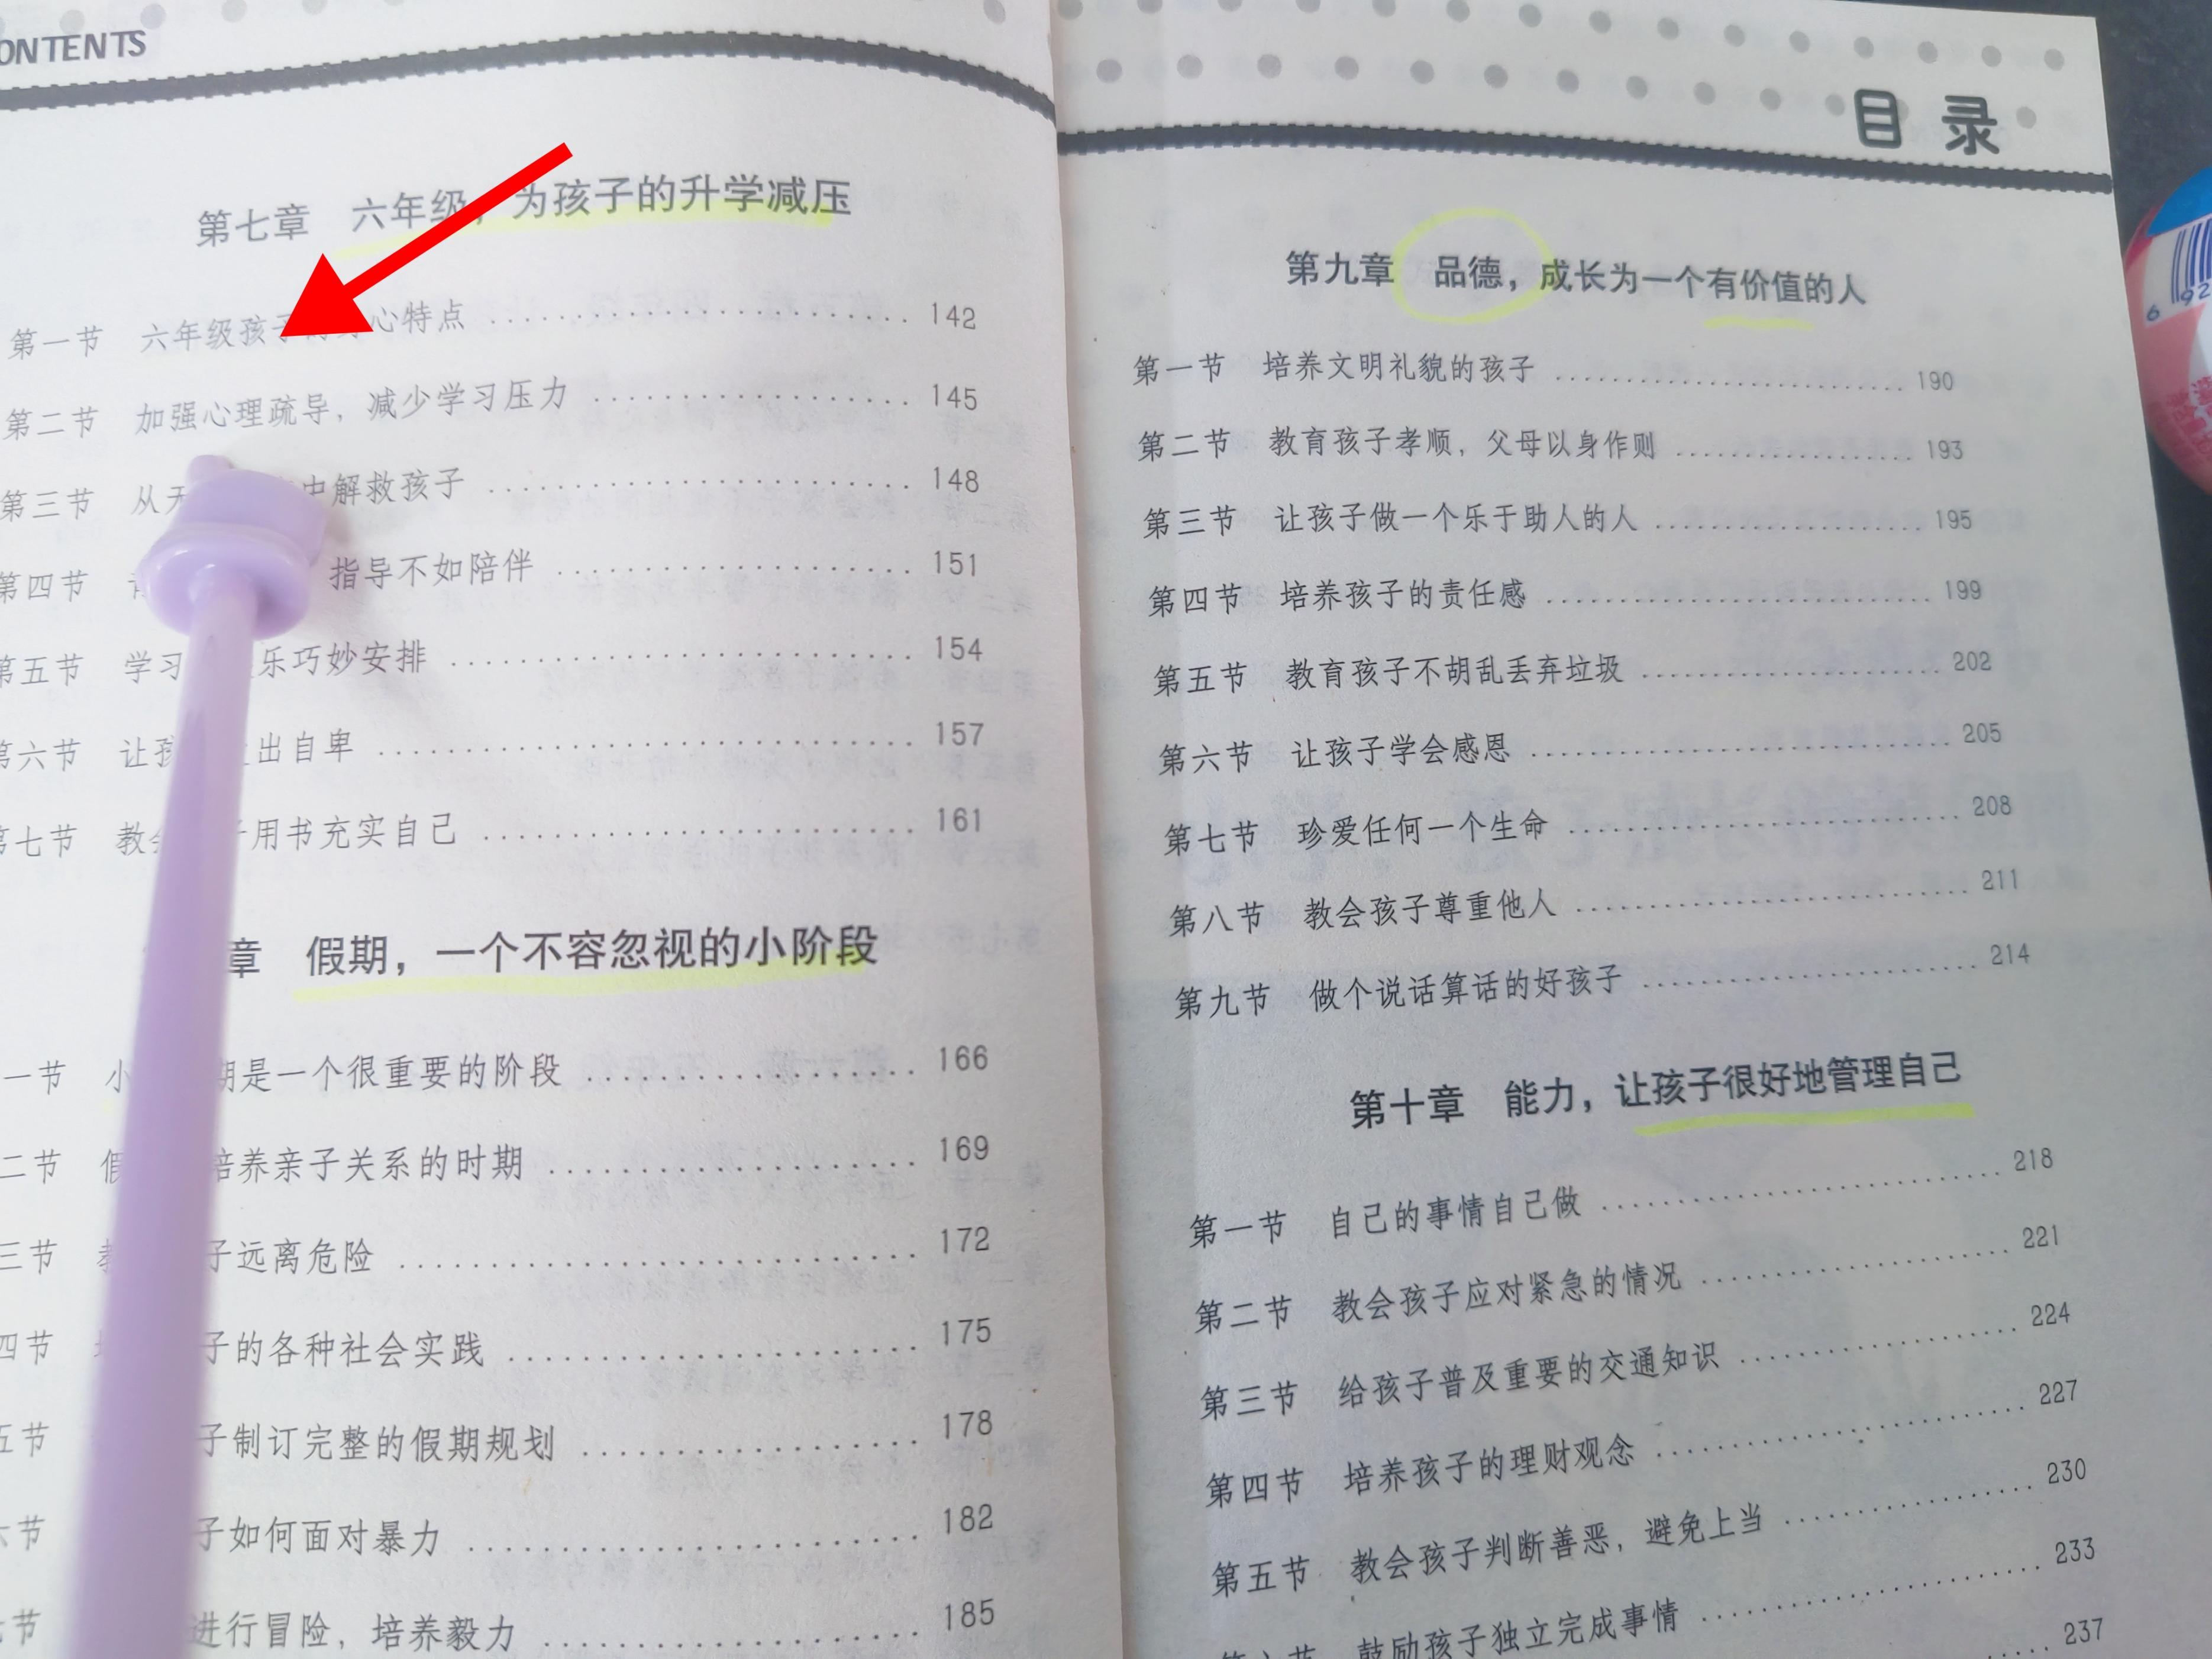 CONTENTS
第七章 六年级，为孩子的升学减压
第一节 六年级孩 心特点 142
第二节 加强心理疏导，减少学习压力 145
第三节 从 中解救孩子 148
第四节 指导不如陪伴 151
第五节 学习 乐巧妙安排 154
第六节 让孩 出自卑 157
第七节 教 用书充实自己 161
章 假期，一个不容忽视的小阶段
一节 小 期是一个很重要的阶段 166
二节 培养亲子关系的时期 169
三节 子远离危险 172
四节 子的各种社会实践 175
五节 子制订完整的假期规划 178
六节 子如何面对暴力 182
节 进行冒险，培养毅力 185
目录
第九章 品德，成长为一个有价值的人
第一节 培养文明礼貌的孩子 190
第二节 教育孩子孝顺，父母以身作则 193
第三节 让孩子做一个乐于助人的人 195
第四节 培养孩子的责任感 199
第五节 教育孩子不胡乱丢弃垃圾 202
第六节 让孩子学会感恩 205
第七节 珍爱任何一个生命 208
第八节 教会孩子尊重他人 211
第九节 做个说话算话的好孩子 214
第十章 能力，让孩子很好地管理自己
第一节 自己的事情自己做 218
第二节 教会孩子应对紧急的情况 221
第三节 给孩子普及重要的交通知识 224
第四节 培养孩子的理财观念 227
第五节 教会孩子判断善恶，避免上当 230
第六节 鼓励孩子独立完成事情 233
237
6 92